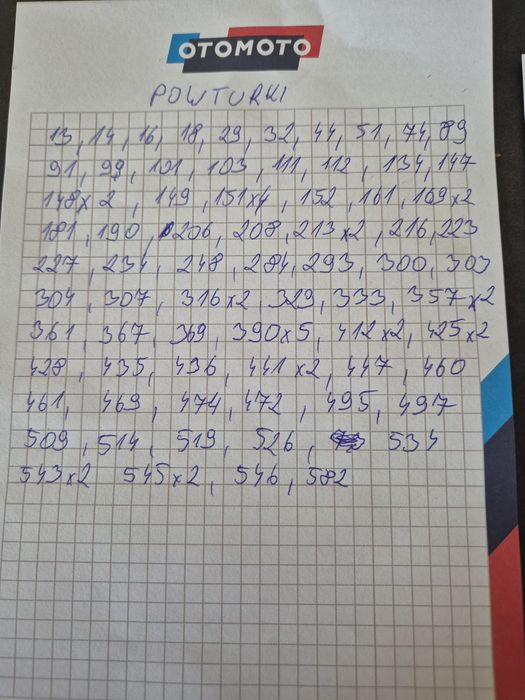 OTOMOTO
POWTURKI
13, 14, 16, 18, 29, 32, 44, 51, 74, 89
91, 99, 101, 103, 111, 112, 134, 147
148x2, 149, 151x4, 152, 161, 169x2
181, 190, 206, 208, 213x2, 216, 223
227, 234, 248, 284, 293, 300, 303
304, 307, 316x2, 329, 333, 357x2
361, 367, 369, 390x5, 412x2, 425x2
428, 435, 436, 441x2, 447, 460
461, 469, 474, 472, 495, 497
509, 514, 519, 526, 534
543x2 545x2, 546, 582